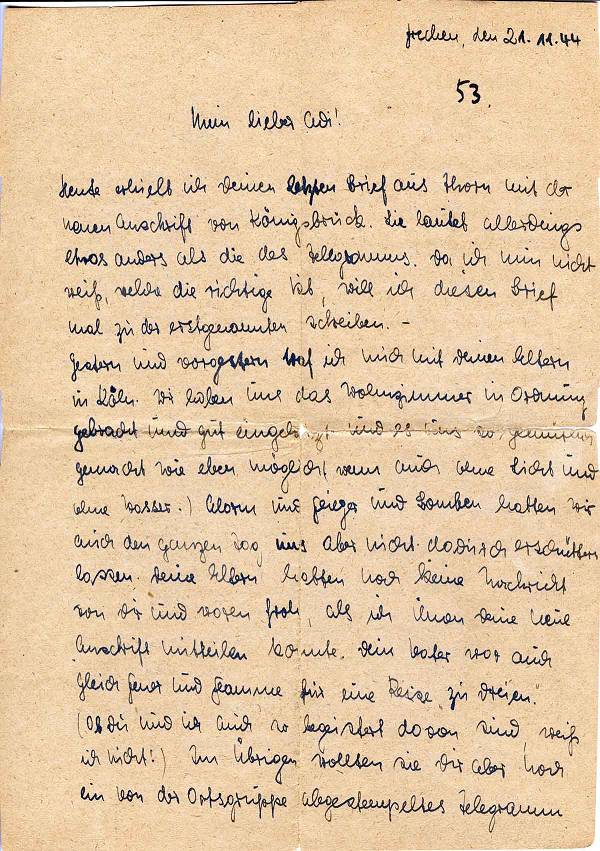 Frechen, den 21.11.44
53.
Mein lieber Adi!
Heute erhielt ich deinen letzten Brief aus Thorn mit der
neuen Anschrift von Königsbrück. Sie lautet allerdings
etwas anders als die des Telegramms. Da ich nun nicht
weiß, welche die richtige ist, will ich diesen Brief
mal zu der erstgenannten schreiben. –
Gestern und vorgestern traf ich mich mit deinen Eltern
in Köln. Wir haben uns das Wohnzimmer in Ordnung
gebracht und gut und es uns so gemütlich
gemacht wie eben möglich (wenn auch ohne Licht und
ohne Wasser.) Alarm und Flieger und Bomben hatten wir
auch den ganzen Tag uns aber nicht dadurch erschüttern
lassen. Deine Eltern hatten noch keine Nachricht
von dir und waren froh, als ich ihnen deine neue
Anschrift mitteilen konnte. Dein Vater war auch
gleich Feuer und Flamme für eine Reise „zu dreien“.
(Ob du und ich auch so begeistert davon sind, weiß
ich nicht!) Im Übrigen wollten sie dir aber noch
ein von der Ortsgruppe abgestempeltes Telegramm